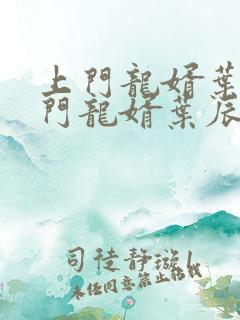 上門龍婿葉
門龍婿葉辰
司徒靜璇l
未经同意禁止转载